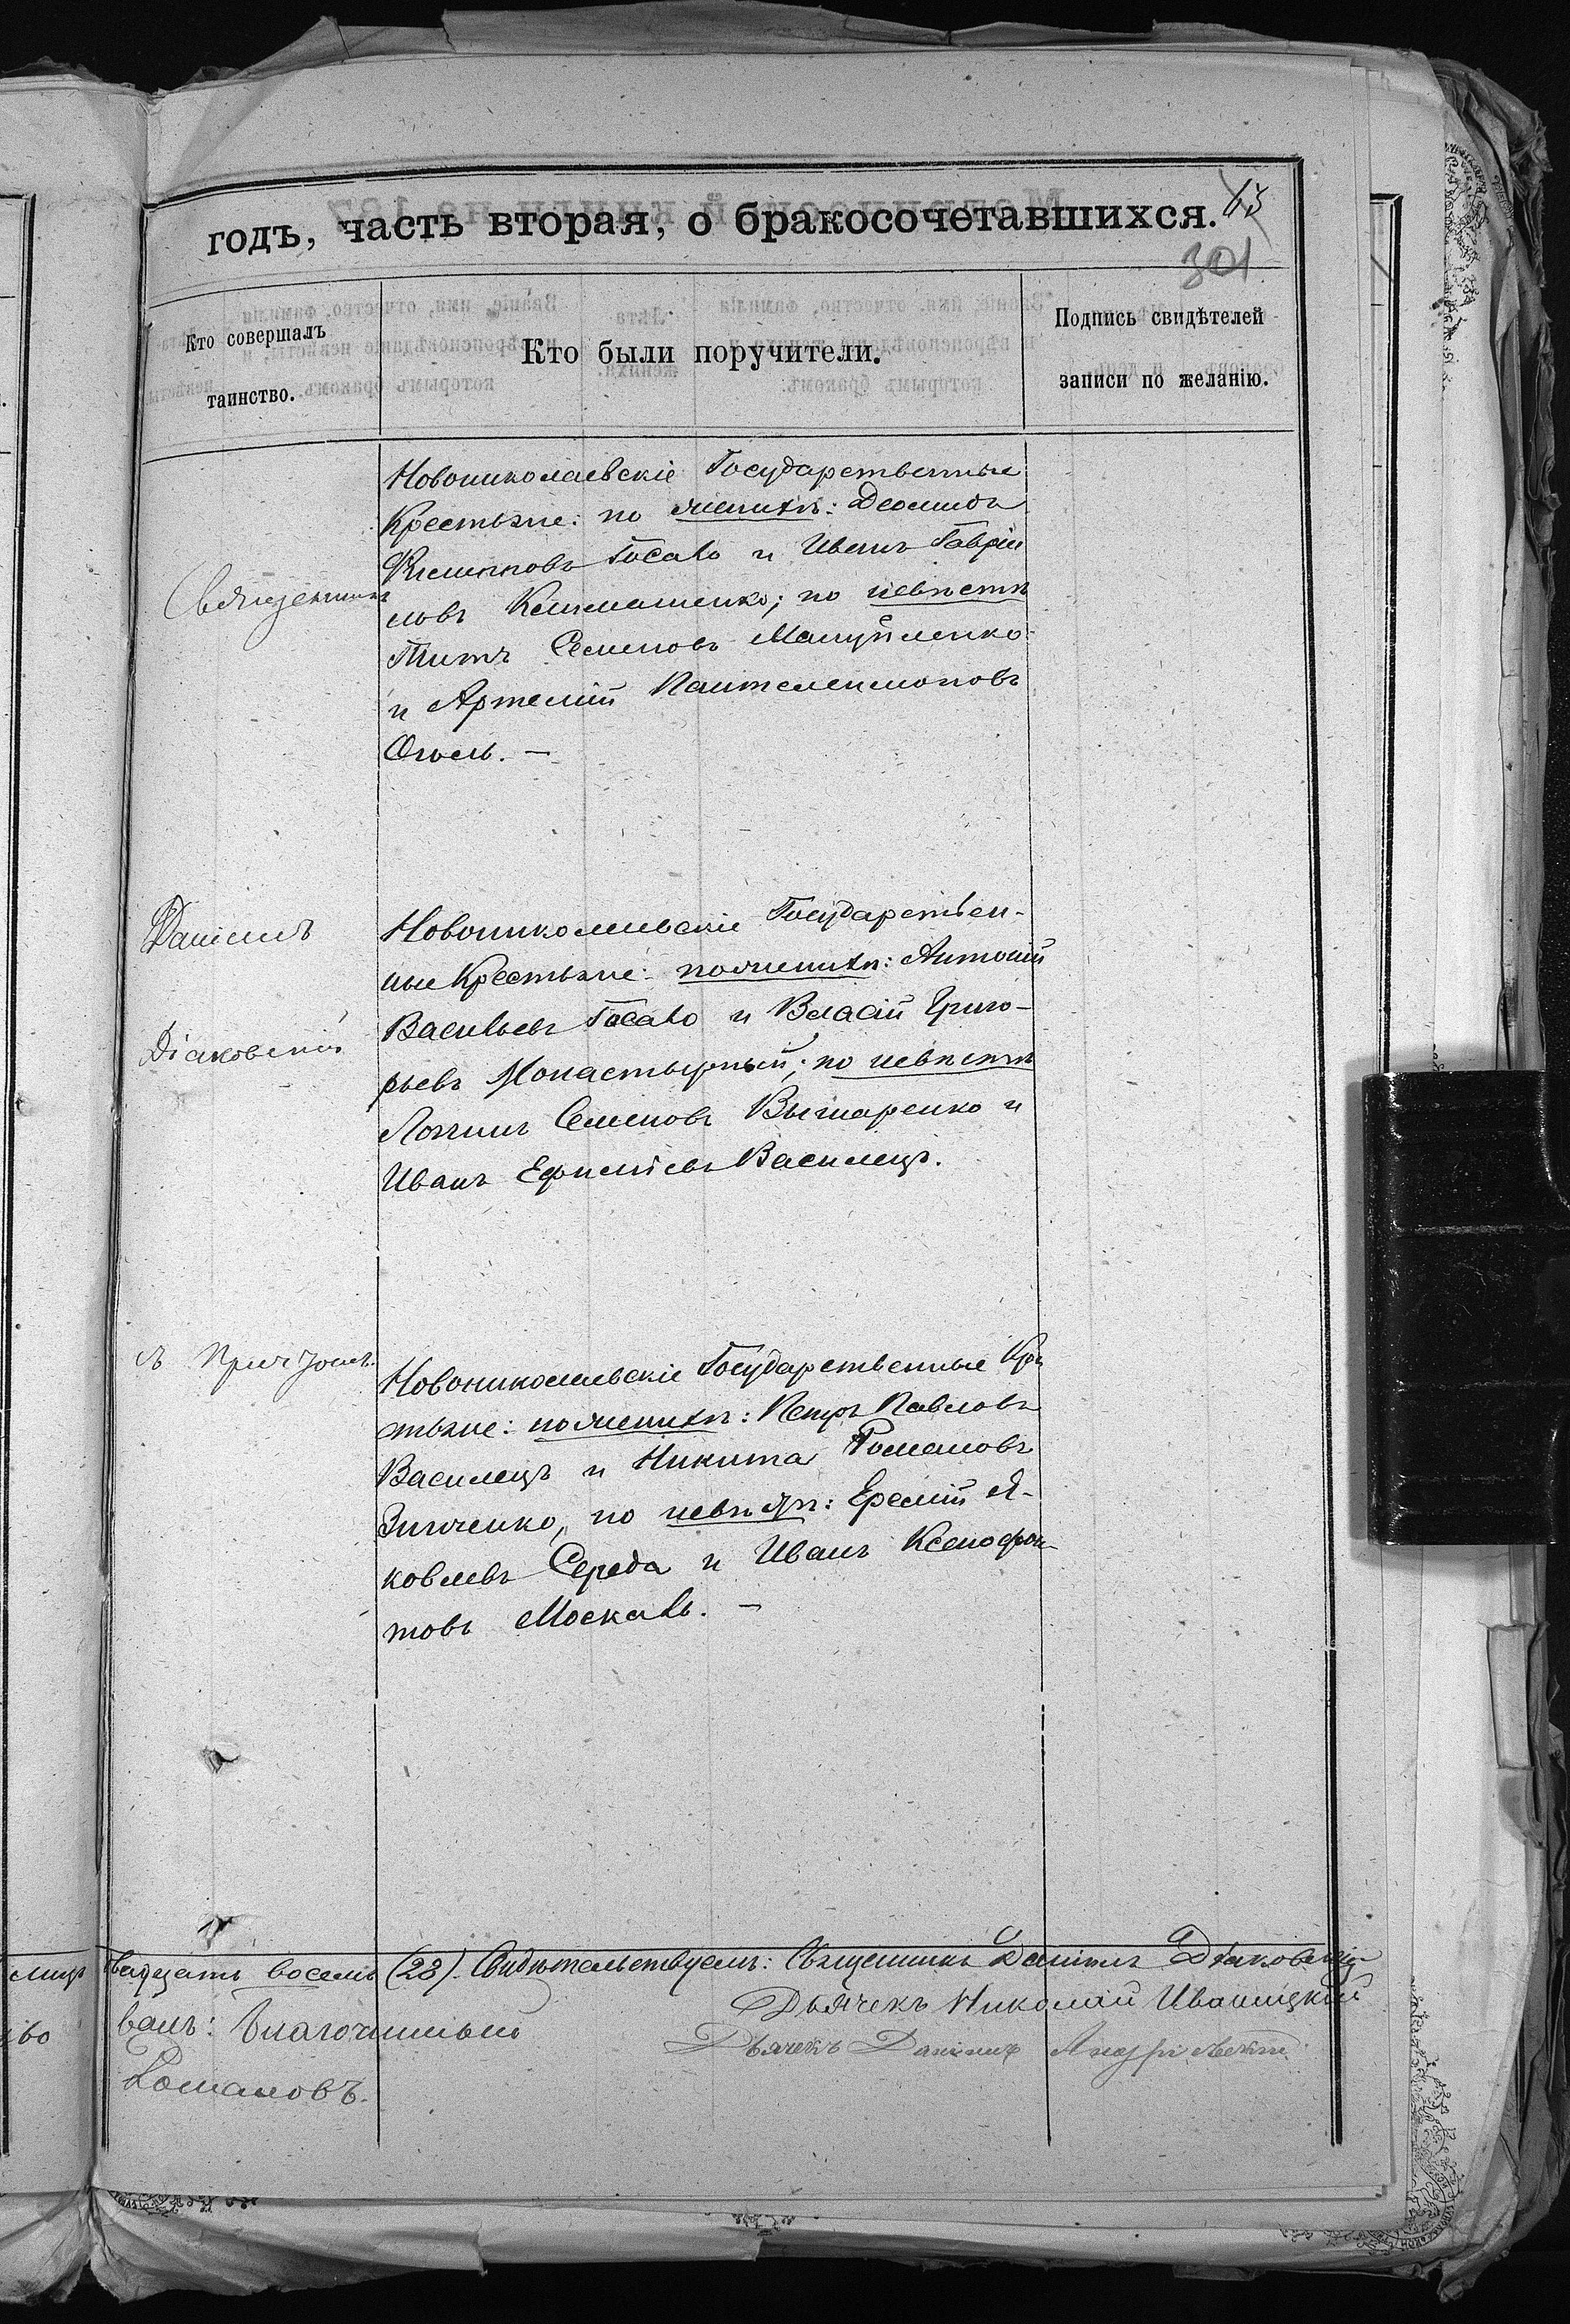 годъ, часть вторая, о бракосочетавшихся.
301
Кто совершалъ
таинство.
Кто были поручители.
Подпись свидѣтелей
записи по желанію.
Священникъ
Новониколаевскіе Государственные
Крестьяне: по женихѣ: Деомидъ
Госало и Иванъ Гаврі
ловъ по невѣстѣ
Титъ Семеновъ Мануйленко
и Артемій Пантелеимоновъ
Даніилъ
Діаковскій
Новониколаевскіе Государствен-
ные Крестьяне: по женихѣ: Антоній
Васильевъ Госало и Власій Григо-
рьевъ Монастырный; по невѣстѣ
Логгинъ Семеновъ и
Иванъ Ефиміевъ Василецъ.
съ Причтомъ.
Новониколаевскіе Государственные Кре
стьяне: по женихѣ: Петръ Павловъ
Василецъ и Никита Романовъ
Зинченко, по невѣстѣ: Еремій Я-
ковлевъ Середа и Иванъ Ксенофон-
товъ Москаль. —
двадцать восемь (28). Свидѣтельствуемъ: Священникъ Даніилъ Діаковскій
Дьячекъ Николай Иваницкій
Дьячекъ Даніилъ
валъ: Благочинный
Романовъ.